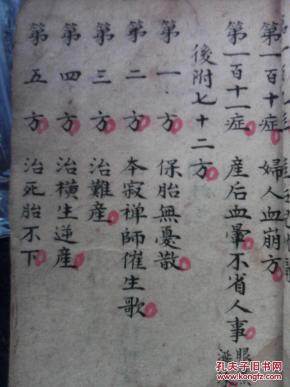 第一百十症 婦人血崩方
第一百十一症 産后血暈不省人事
後附七十二方
第一方 保胎無憂散
第二方 本寂禅師催生歌
第三方 治難産
第四方 治橫生逆産
第五方 治死胎不下